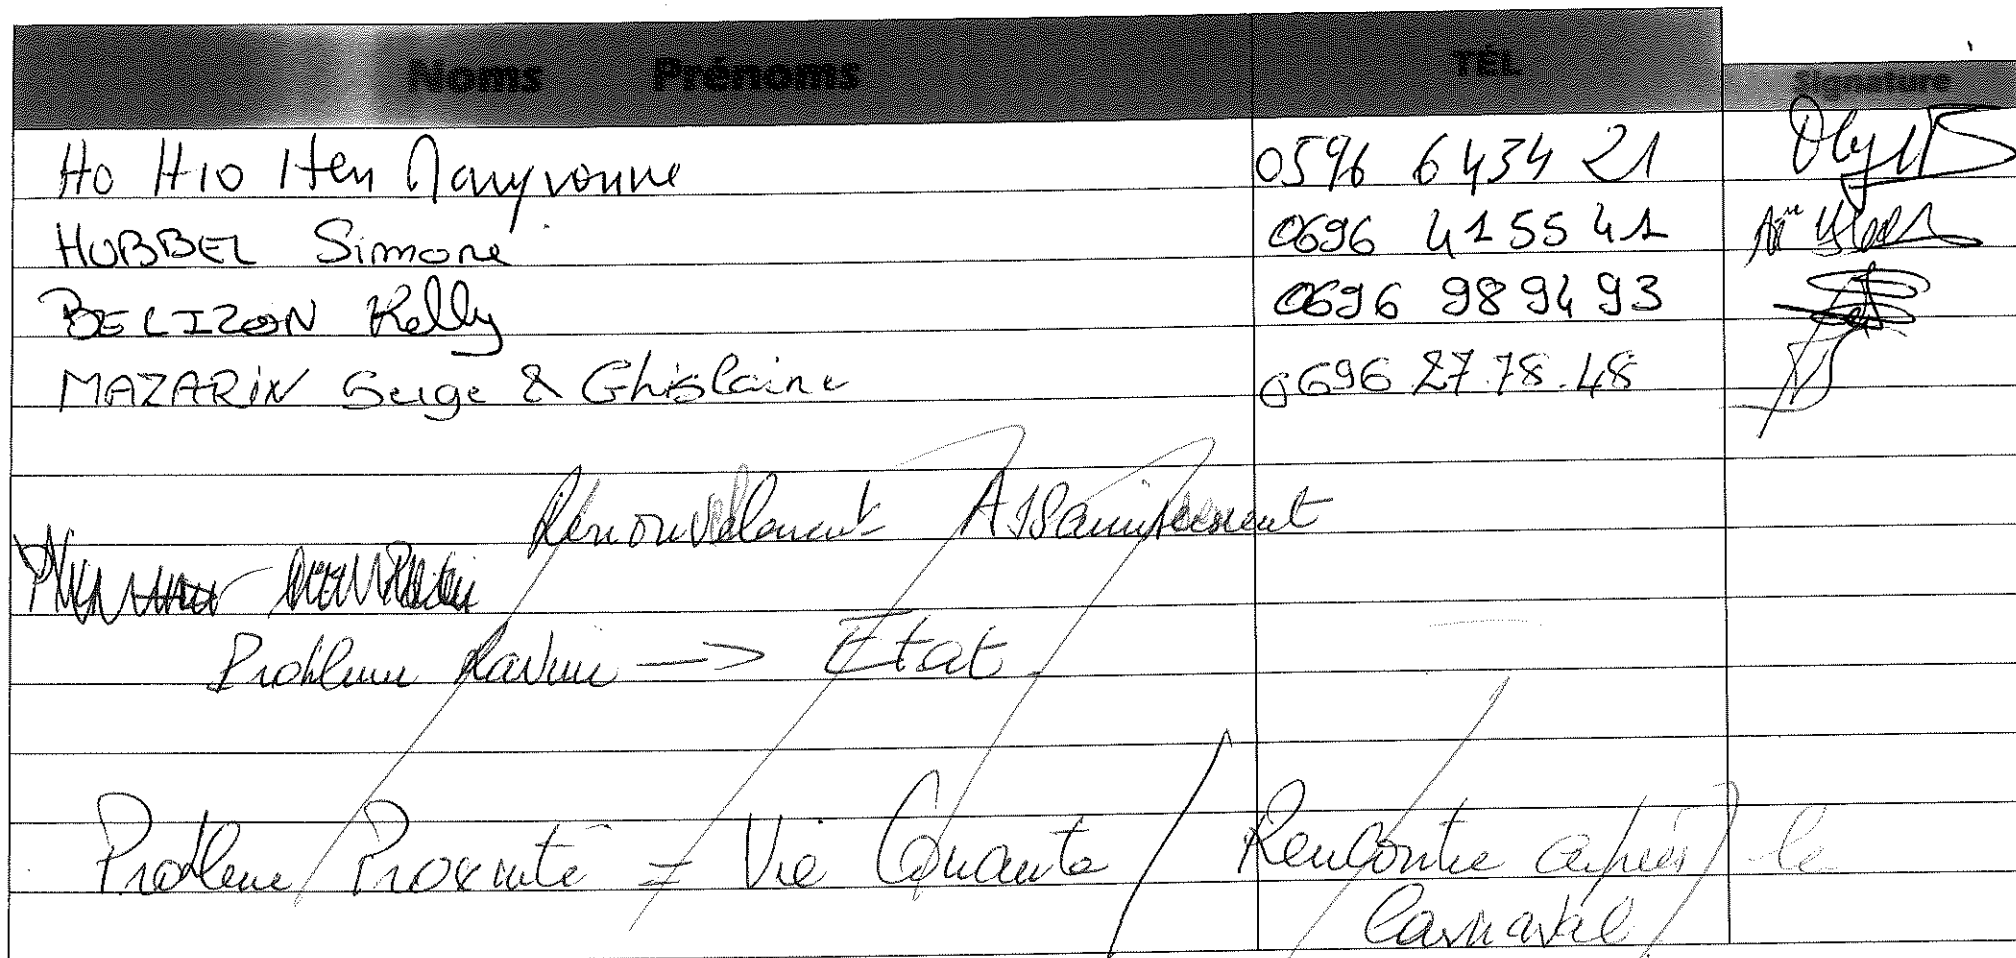 Noms Prénoms TÉL Signature
Ho Hio Hen Maryvonne 0596 6434 21
HUBBEL Simone 0696 41 55 41
BELIZON Kelly 0696 98 94 93
MAZARIN Serge & Ghislaine 0696 27.78.48
Renouvelement Assainissement
Probleme Ravine —> Etat
Probleme Proximité = Vie Courante / Rencontre après le
Carnaval